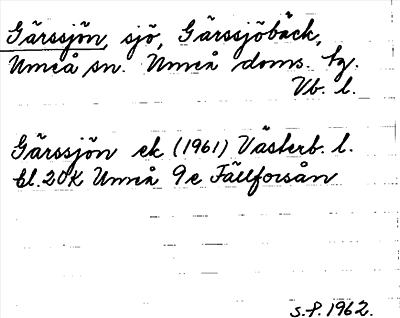 Gärssjön, sjö, Gärssjöbäck,
Umeå sn. Umeå doms. tg.
Vb. l.
Gärssjön ek (1961) Västerb. l.
bl. 20K Umeå 9e Fällforsån
s.f. 1962.